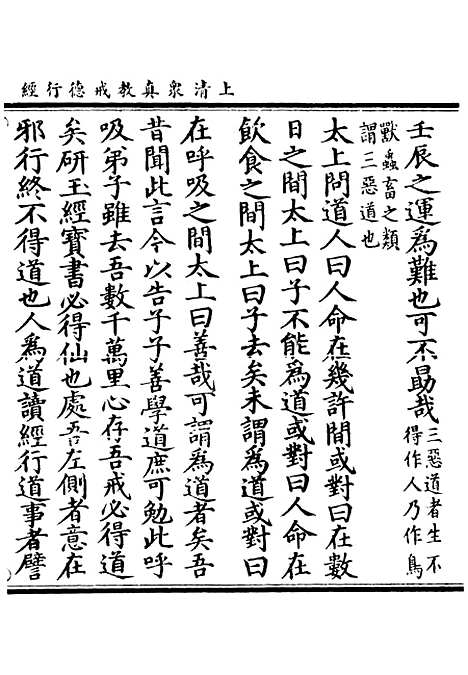 上清衆真教戒德行經
壬辰之運爲難也可不勗哉三惡道者生不得作人乃作鳥
獸蟲畜之類謂三惡道也
太上問道人曰人命在幾許間或對曰在數
日之間太上曰子不能爲道或對曰人命在
飲食之間太上曰子去矣未謂爲道或對曰
在呼吸之間太上曰善哉可謂爲道者矣吾
昔聞此言今以告子子善學道庶可勉此呼
吸弟子雖去吾數千萬里心存吾戒必得道
矣研玉經寶書必得仙也處吾左側者意在
邪行終不得道也人爲道讀經行道事者譬